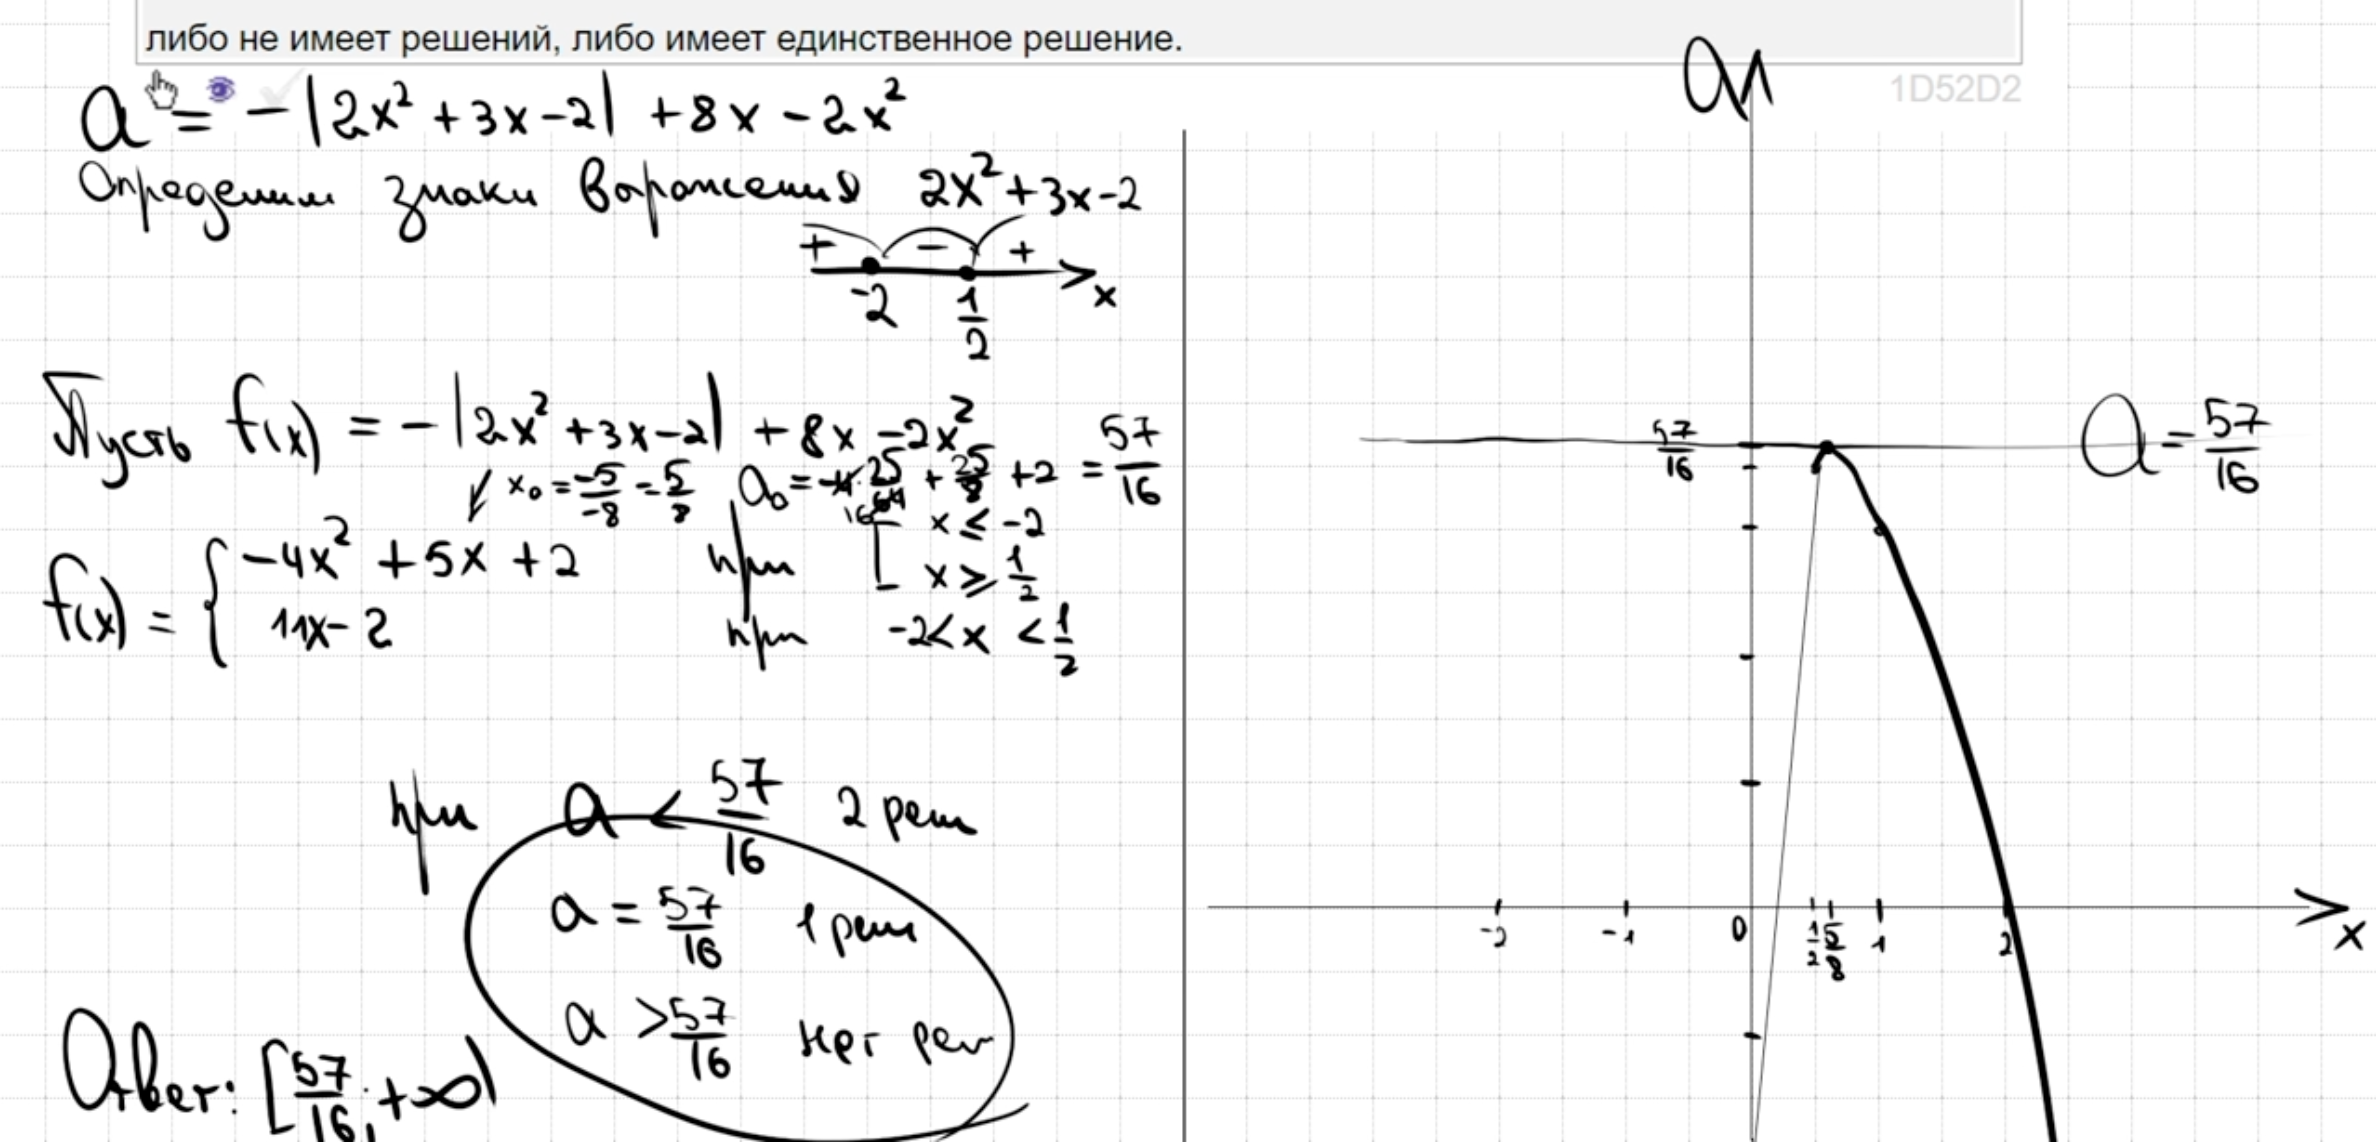 либо не имеет решений, либо имеет единственное решение.
1D52D2
a = -|2x² + 3x - 2| + 8x - 2x²
Определим знаки выражения 2x² + 3x - 2
+ - +
-2 1/2 x
Пусть f(x) = -|2x² + 3x - 2| + 8x - 2x²
x₀ = -5/-8 = 5/8 a₀ = -4·25/64 + 25/8 + 2 = 57/16
f(x) = { -4x² + 5x + 2 при [ x ≤ -2
x ≥ 1/2
11x - 2 при -2 < x < 1/2
при a < 57/16 2 реш
a = 57/16 1 реш
a > 57/16 нет реш
Ответ: [57/16; +∞)
a
57/16
a = 57/16
-2 -1 0 1/2 5/8 1 2 x